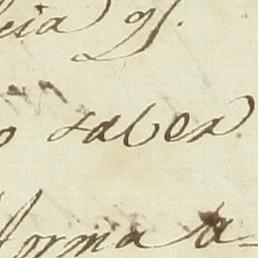 cia q.
o saber
forma a